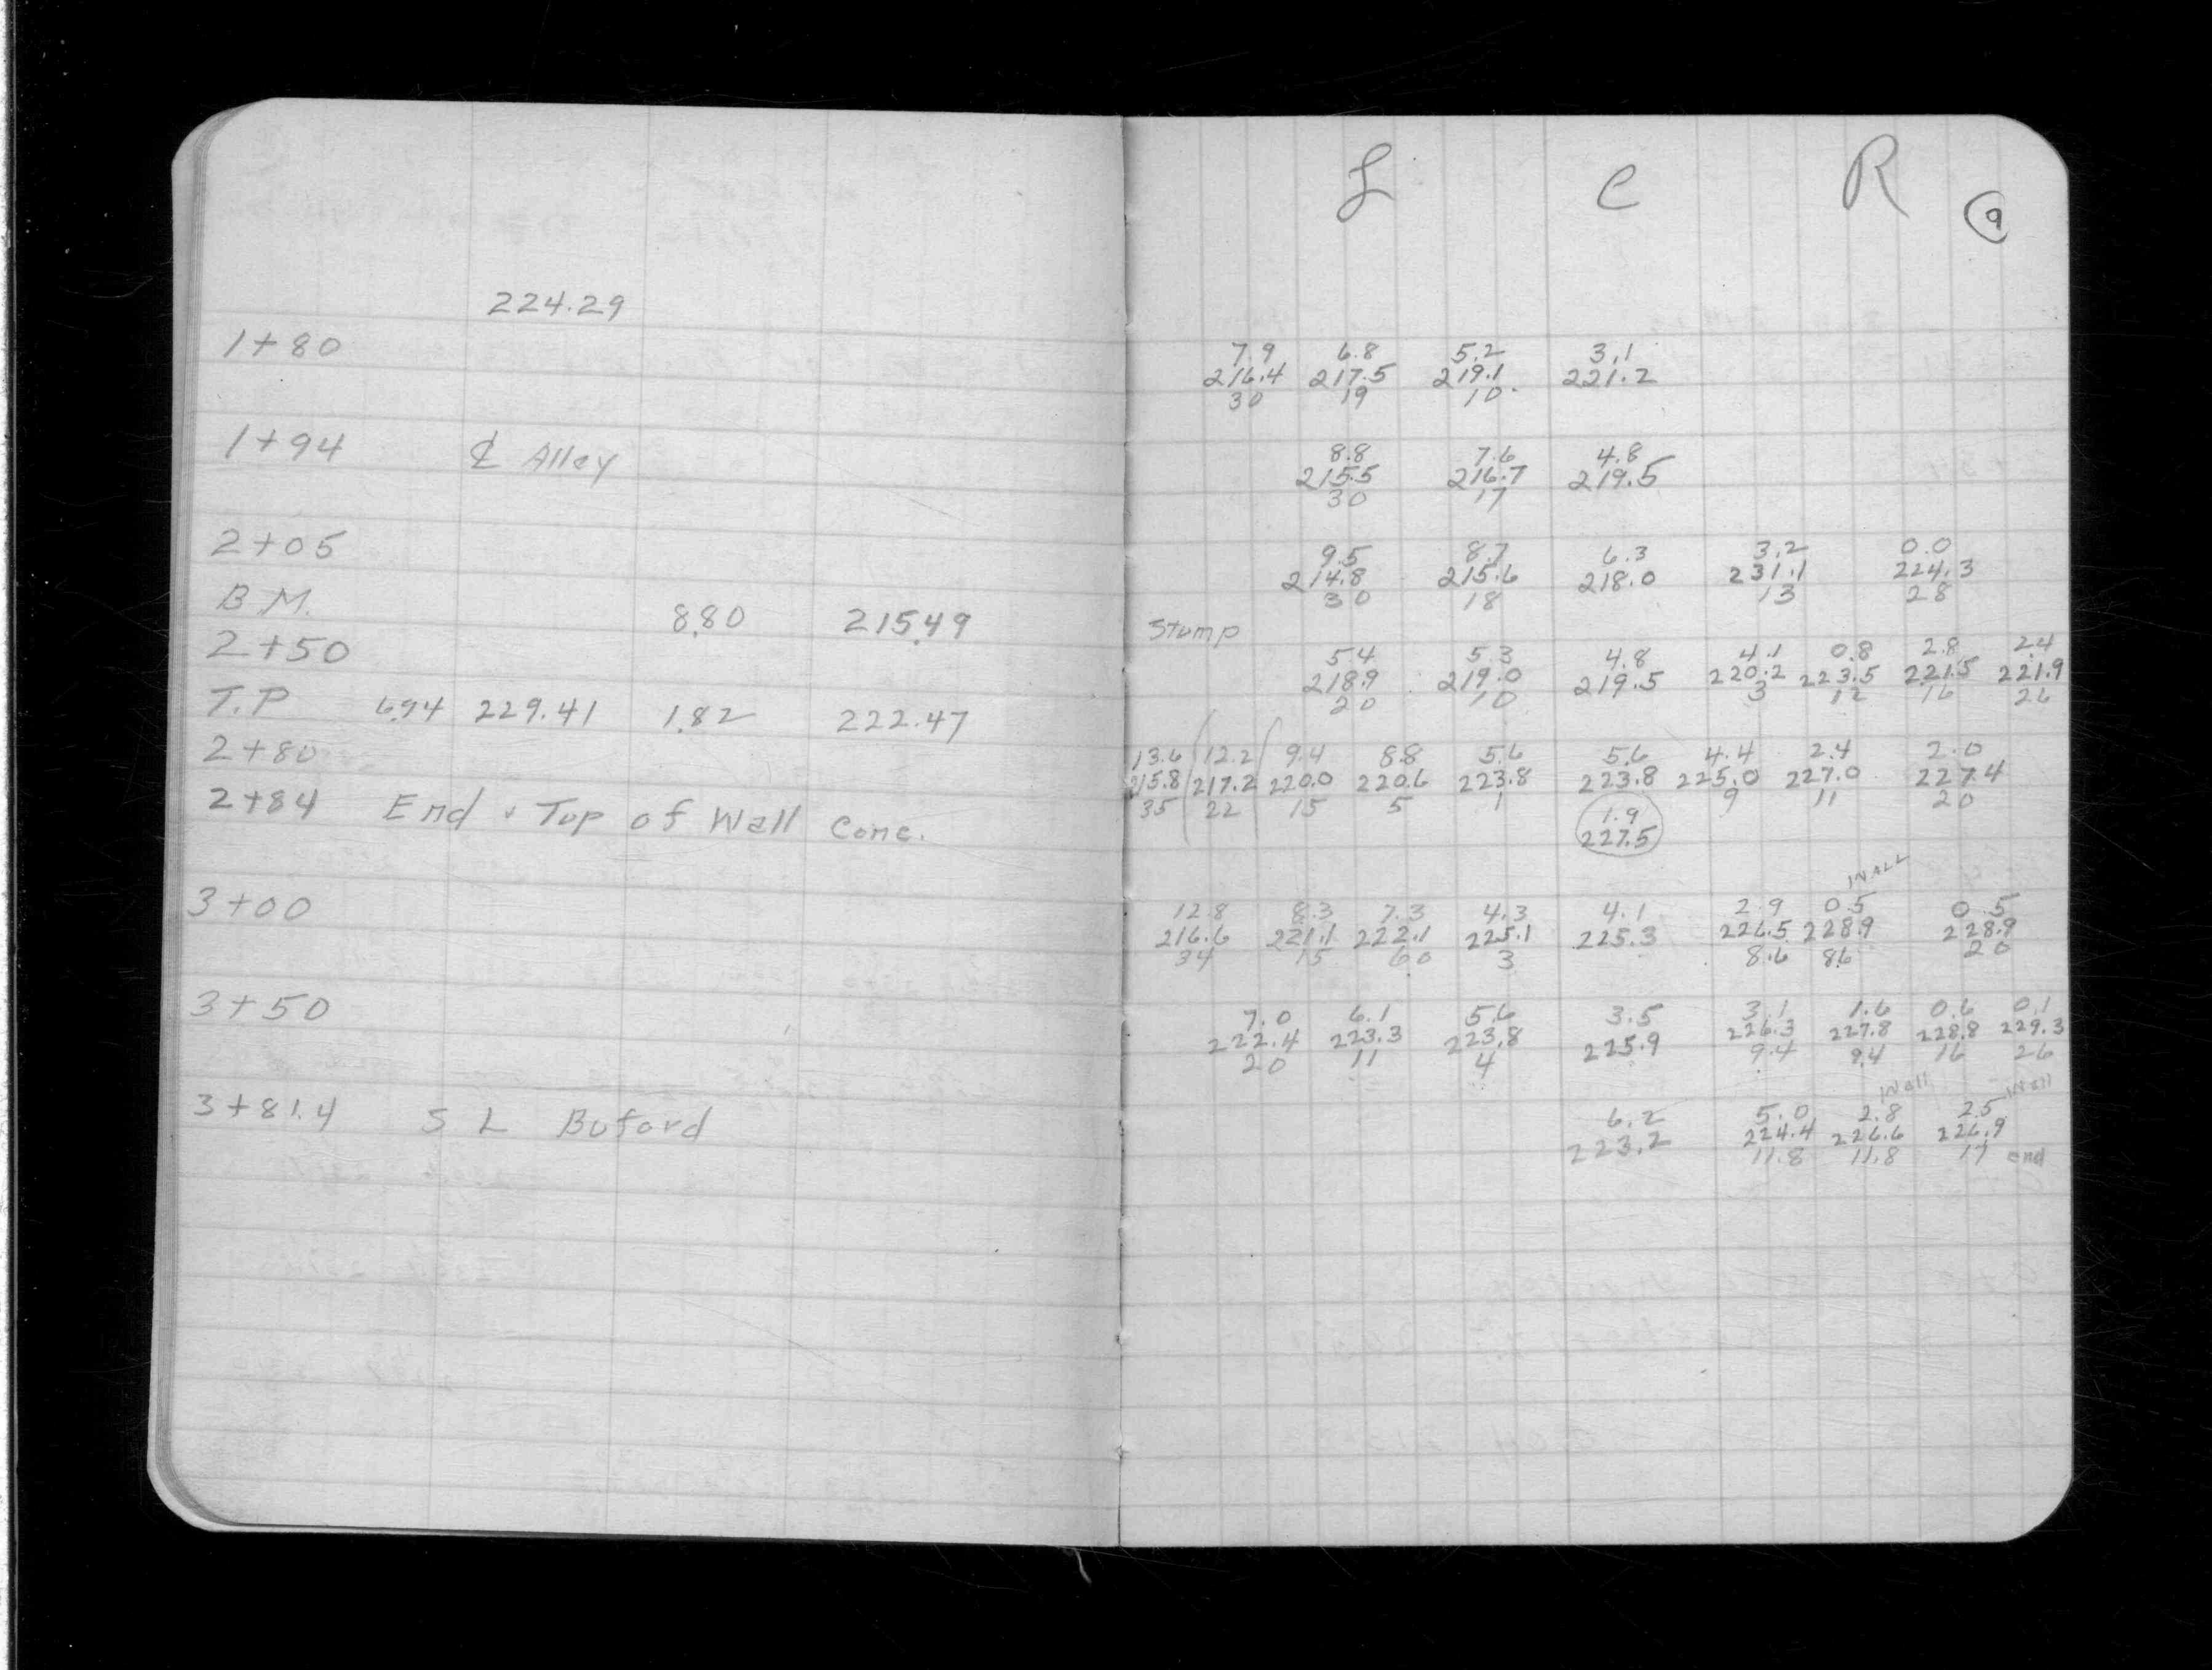 L C R
9
224.29
1+80
7.9 6.8 5.2 3.1
216.4 217.5 219.1 221.2
30 19 10.
1+94 ℄ Alley
8.8 7.6 4.8
215.5 216.7 219.5
30 17
2+05
9.5 8.7 6.3 3.2 0.0
214.8 215.6 218.0 231.1 224.3
30 18 13 28
B.M. 8.80 215.49 Stump
2+50
5.4 5.3 4.8 4.1 0.8 2.8 2.4
218.9 219.0 219.5 220.2 223.5 221.5 221.9
20 10 3 12 16 26
T.P 6.94 229.41 1.82 222.47
2+80
13.6 12.2 9.4 8.8 5.6 5.6 4.4 2.4 2.0
215.8 217.2 220.0 220.6 223.8 223.8 225.0 227.0 227.4
35 22 15 5 1 9 11 20
2+84 End + Top of Wall Conc.
1.9
227.5
WALL
3+00
12.8 8.3 7.3 4.3 4.1 2.9 0.5 0.5
216.6 221.1 222.1 225.1 225.3 226.5 228.9 228.9
34 15 60 3 8.6 8.6 20
3+50
7.0 6.1 5.6 3.5 3.1 1.6 0.6 0.1
222.4 223.3 223.8 225.9 226.3 227.8 228.8 229.3
20 11 4 9.4 9.4 16 26
Wall Wall
3+81.4 S L Buford
6.2 5.0 2.8 2.5
223.2 224.4 226.6 226.9
11.8 11.8 17 end